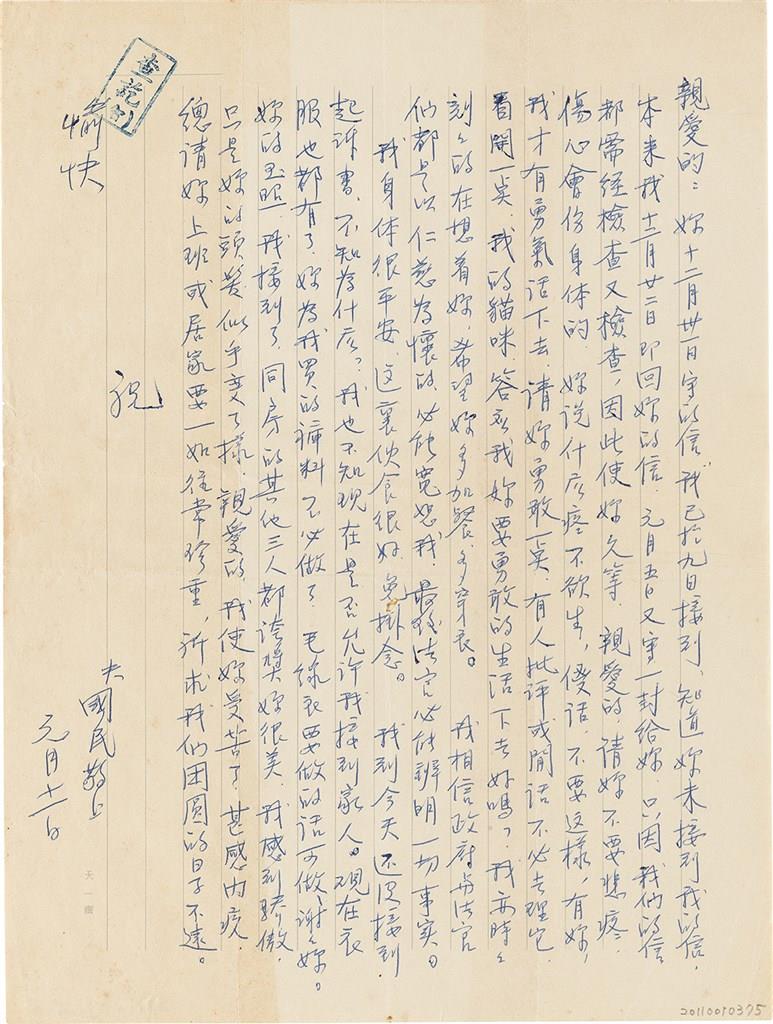 親愛的：妳十二月卅一日字的信，我已於九日接到，知道妳未接到我的信，
本來我十二月廿二日即回妳的信，元月五日又字一封給妳，只因我们的信
都需经檢查又檢查，因此使妳久等，親愛的，請妳不要悲疼，
傷心會伤身体的，妳说什庅疼不欲生，傻話，不要这樣，有妳，
我才有勇氣活下去，請妳勇敢一奌，有人批评或閒話不必去理它，
看開一奌，我的貓咪，答应我妳要勇敢的生活下去好嗎？我亦時々
刻々的在想着妳，希望妳多加餐，多穿衣。 我相信政府与法官
们都是以仁慈為懷的，必能寬恕我，最後法官必能辨明一切事实。
我身体很平安，这裏伙食很好，免掛念。 我到今天还没接到
起诉書，不知為什庅？我也不知現在是否允许我接到家人。現在衣
服也都有了，妳為我買的褲料不必做了，毛線衣要做的話可做，谢々妳。
妳的玉照我接到了，同房的其他三人都誇獎妳很美，我感到驕傲，
只是妳的頭髮似乎变了樣，親愛的，我使妳受苦了，甚感内疚，
總請妳上班或居家要一如往常珍重，祈求我们团圓的日子不遠。
祝
愉快
夫國民敬上
元月十一日
查訖
天一
20110010375